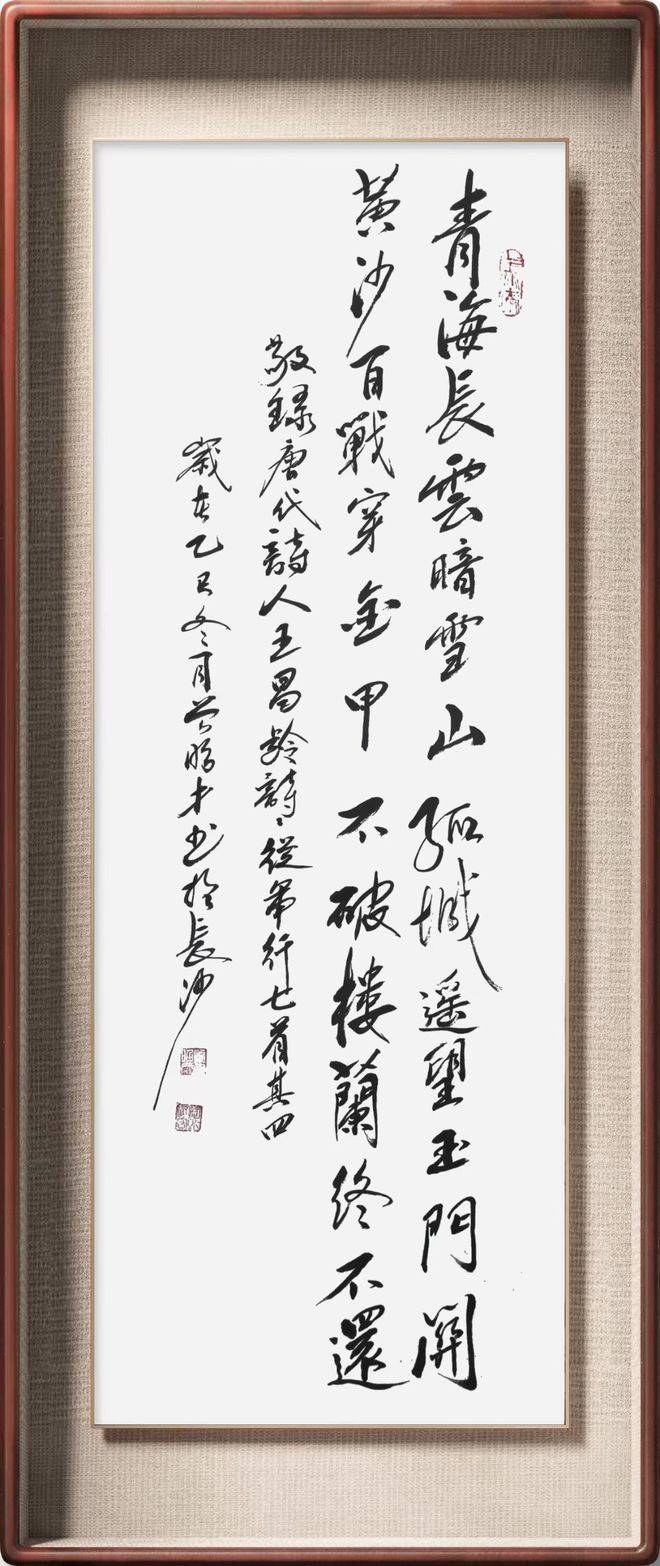 青海長雲暗雪山孤城遥望玉門関
黄沙百戰穿金甲不破楼蘭终不還
敬録唐代詩人王昌龄詩從軍行七首其四
歲在乙巳冬月才书於長沙